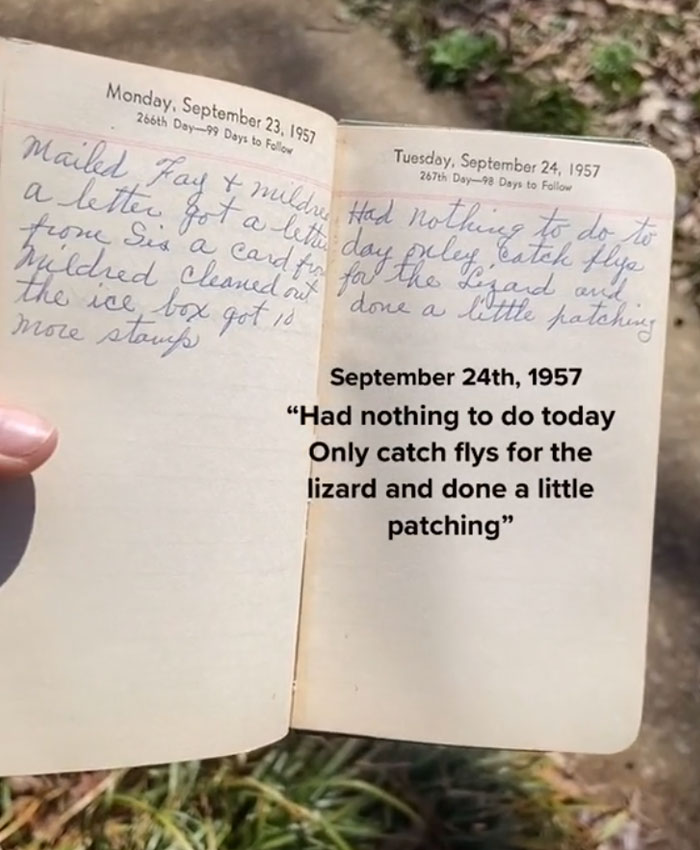 Monday, September 23, 1957
266th Day—99 Days to Follow
Mailed Fay + mildred
a letter got a letter
from Sis a card from
Mildred cleaned out
the ice box got 10
more stamps
Tuesday, September 24, 1957
267th Day—98 Days to Follow
Had nothing to do to
day onley catch flys
for the Lizard and
done a little patching
September 24th, 1957
“Had nothing to do today
Only catch flys for the
lizard and done a little
patching”